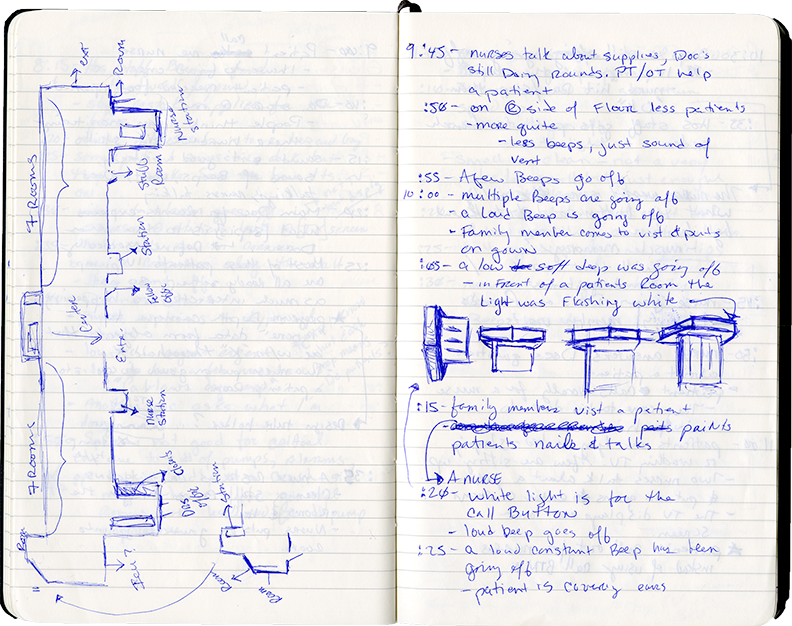 ext
Room
Nurse
Station
Staff
Room
7 Rooms
Station
Center
Entr.
Nurse
Station
7 Rooms
Station
Room
ICU ?
Room
Room
9:45 - nurses talk about supplies, Doc's
still Doing Rounds. PT/OT help
a patient
:50 - on Ⓡ side of Floor less patients
- more quite
- less beeps, just sound of
vent
:55 - A few Beeps go off
10:00 - multiple Beeps are going off
- a loud Beep is going off
- Family member comes to vist & puts
on gown
:05 - a low soft beep was going off
- in Front of a patients Room the
Light was Flashing white
:15 - family members vist a patient
- paints
patients nails & talks
A NURSE
:20 - white light is for the
call Button
- loud beep goes off
:25 - a loud constant Beep has been
going off
- patient is covering ears